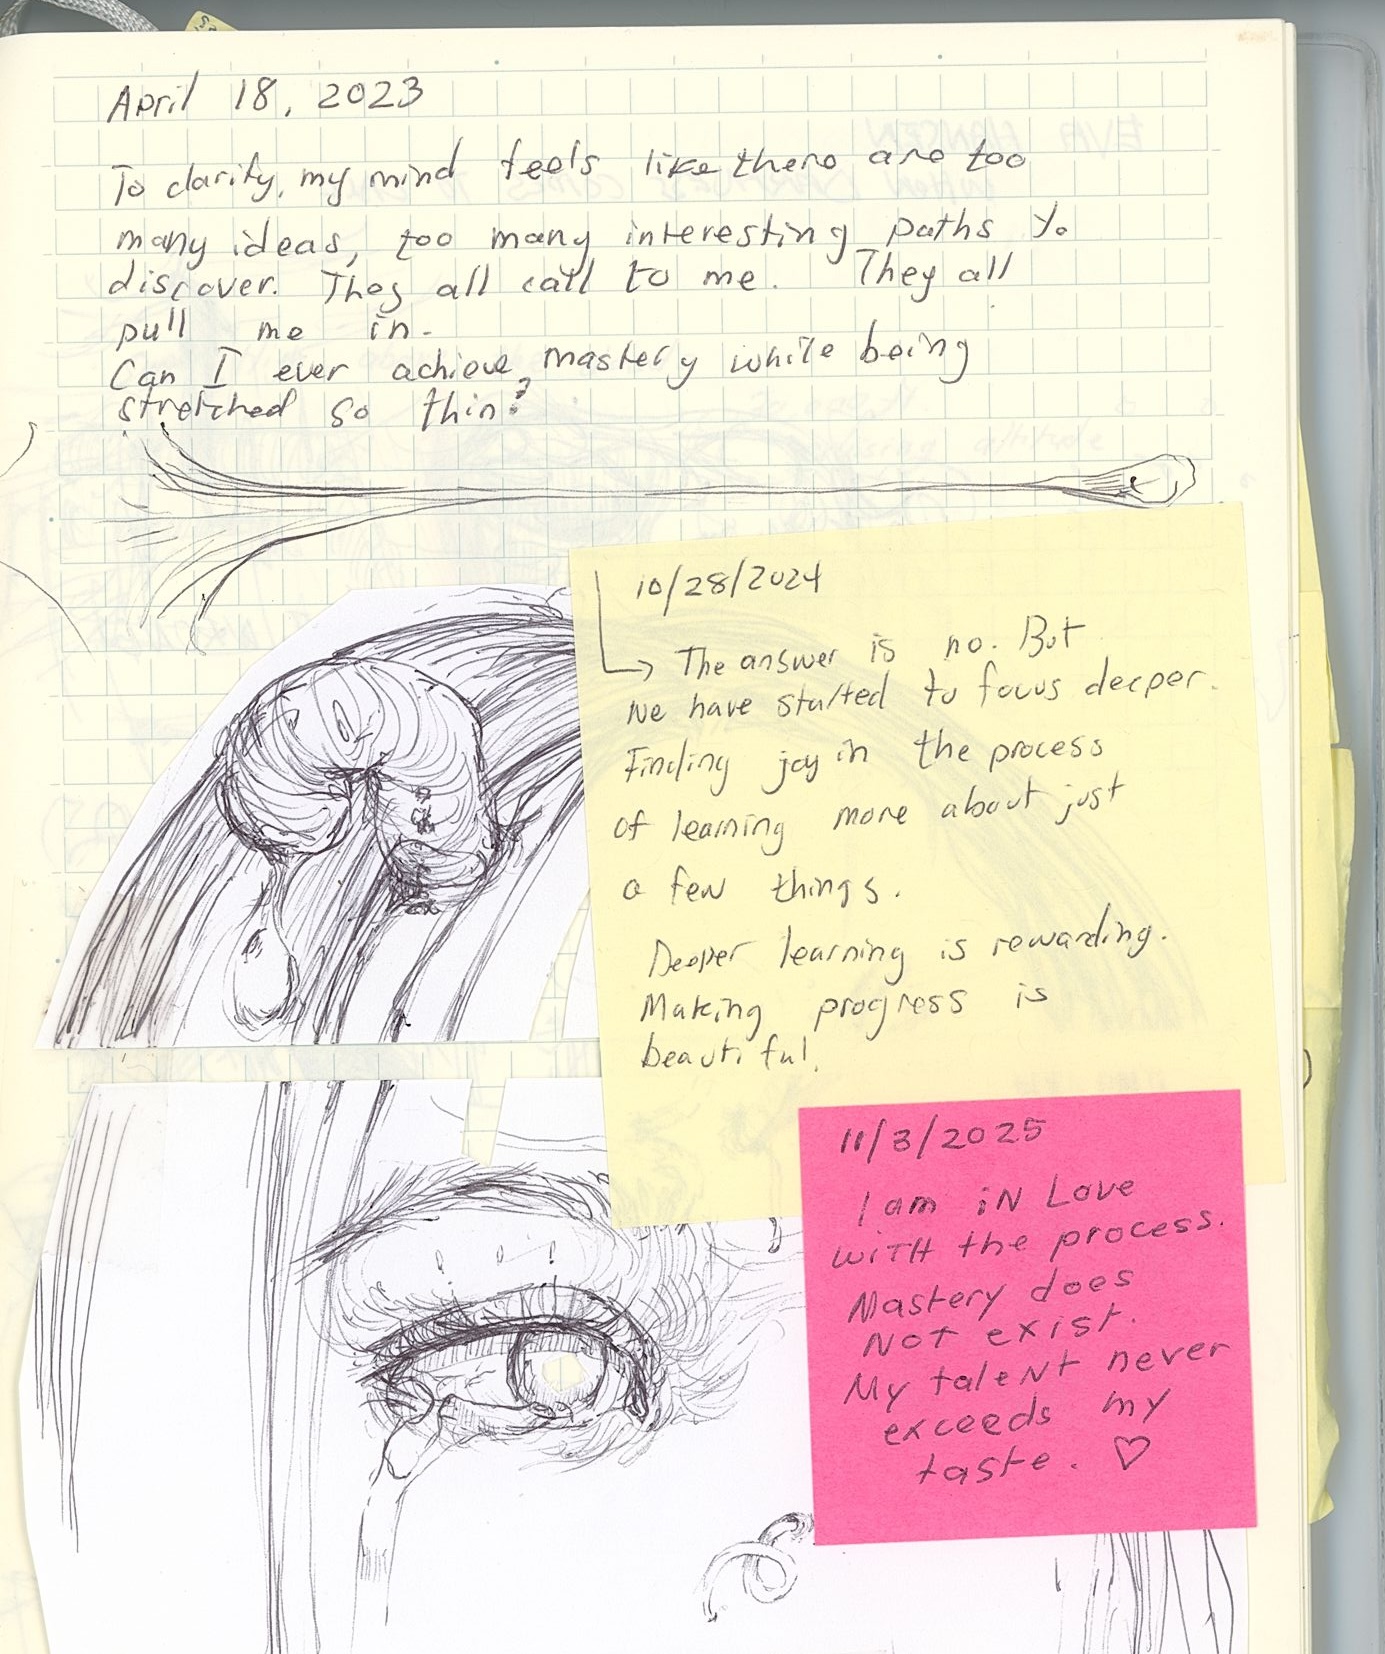 April 18, 2023
To clarify, my mind feels like there are too
many ideas, too many interesting paths to
discover. They all call to me. They all
pull me in.
Can I ever achieve mastery while being
stretched so thin?
10/28/2024
The answer is no. But
we have started to focus deeper.
Finding joy in the process
of learning more about just
a few things.
Deeper learning is rewarding.
Making progress is
beautiful.
11/3/2025
I am iN Love
WiTH the process.
Mastery does
Not exist.
My taleNt never
exceeds my
taste. ♡